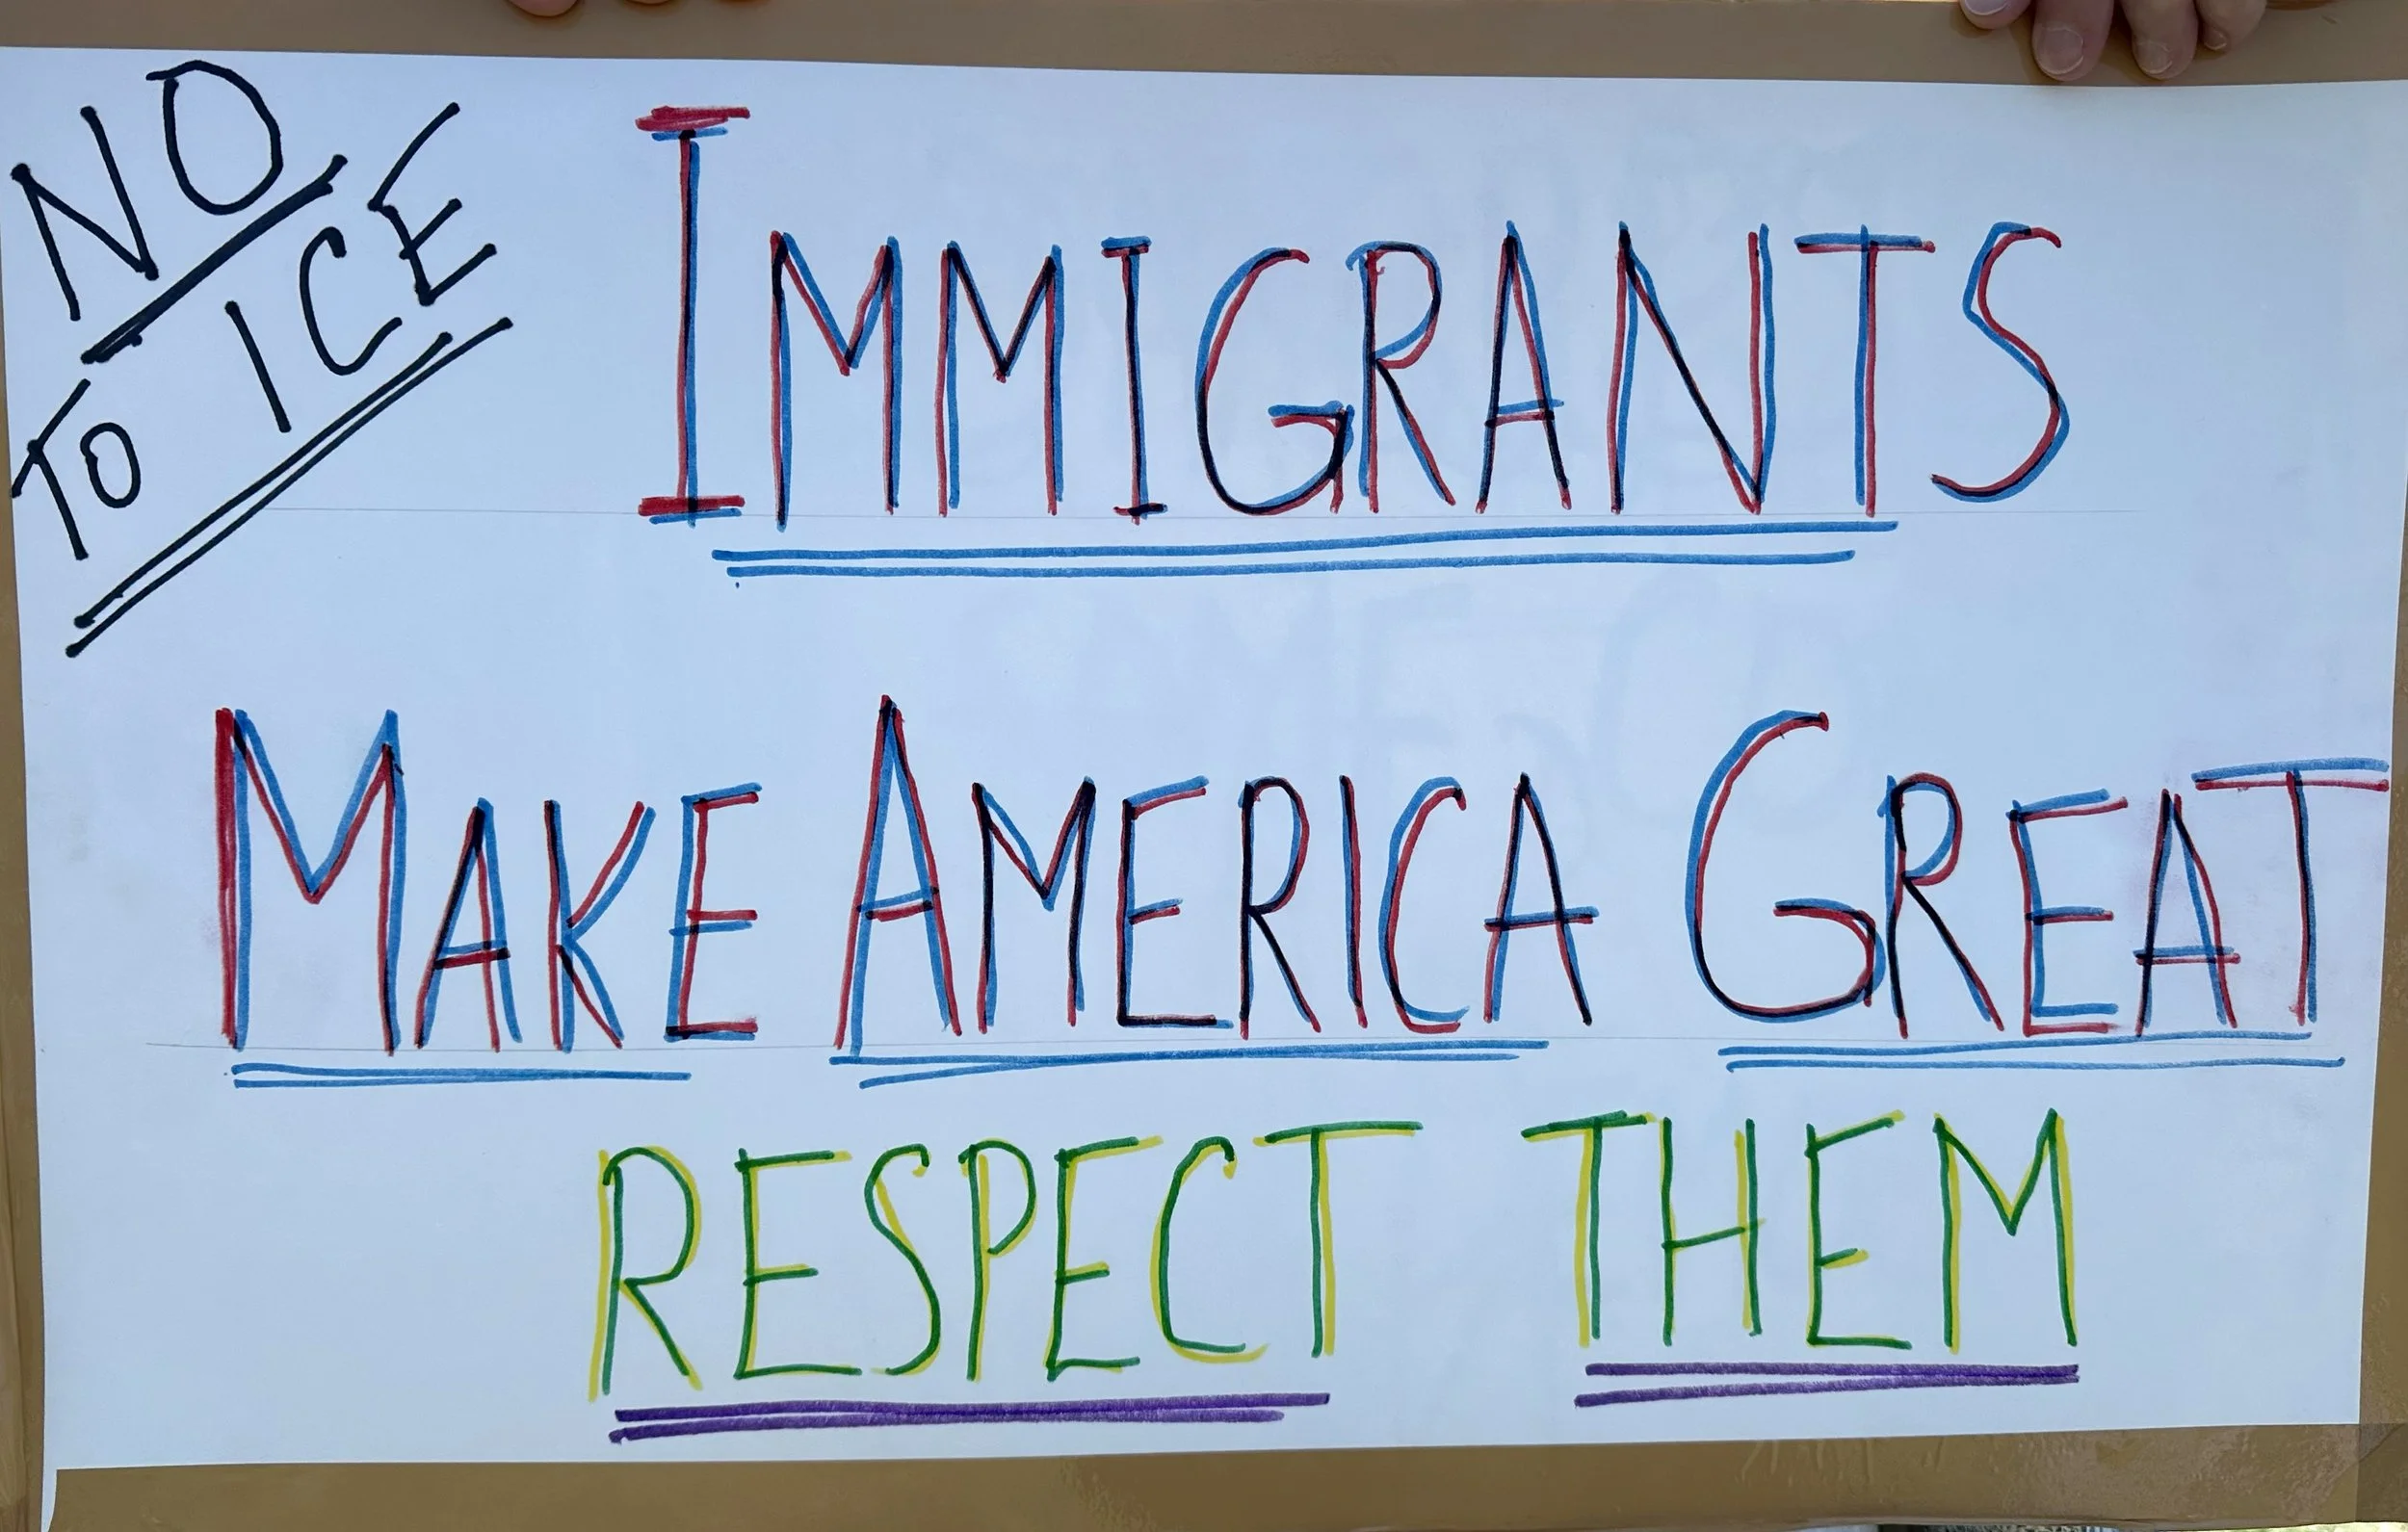 NO
TO ICE
IMMIGRANTS
MAKE AMERICA GREAT
RESPECT THEM